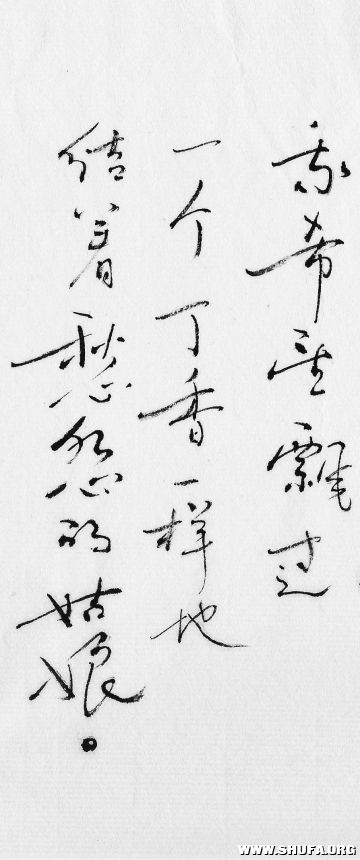 我希望飘过
一个丁香一样地
结着愁怨的姑娘。
WWW.SHUFA.ORG